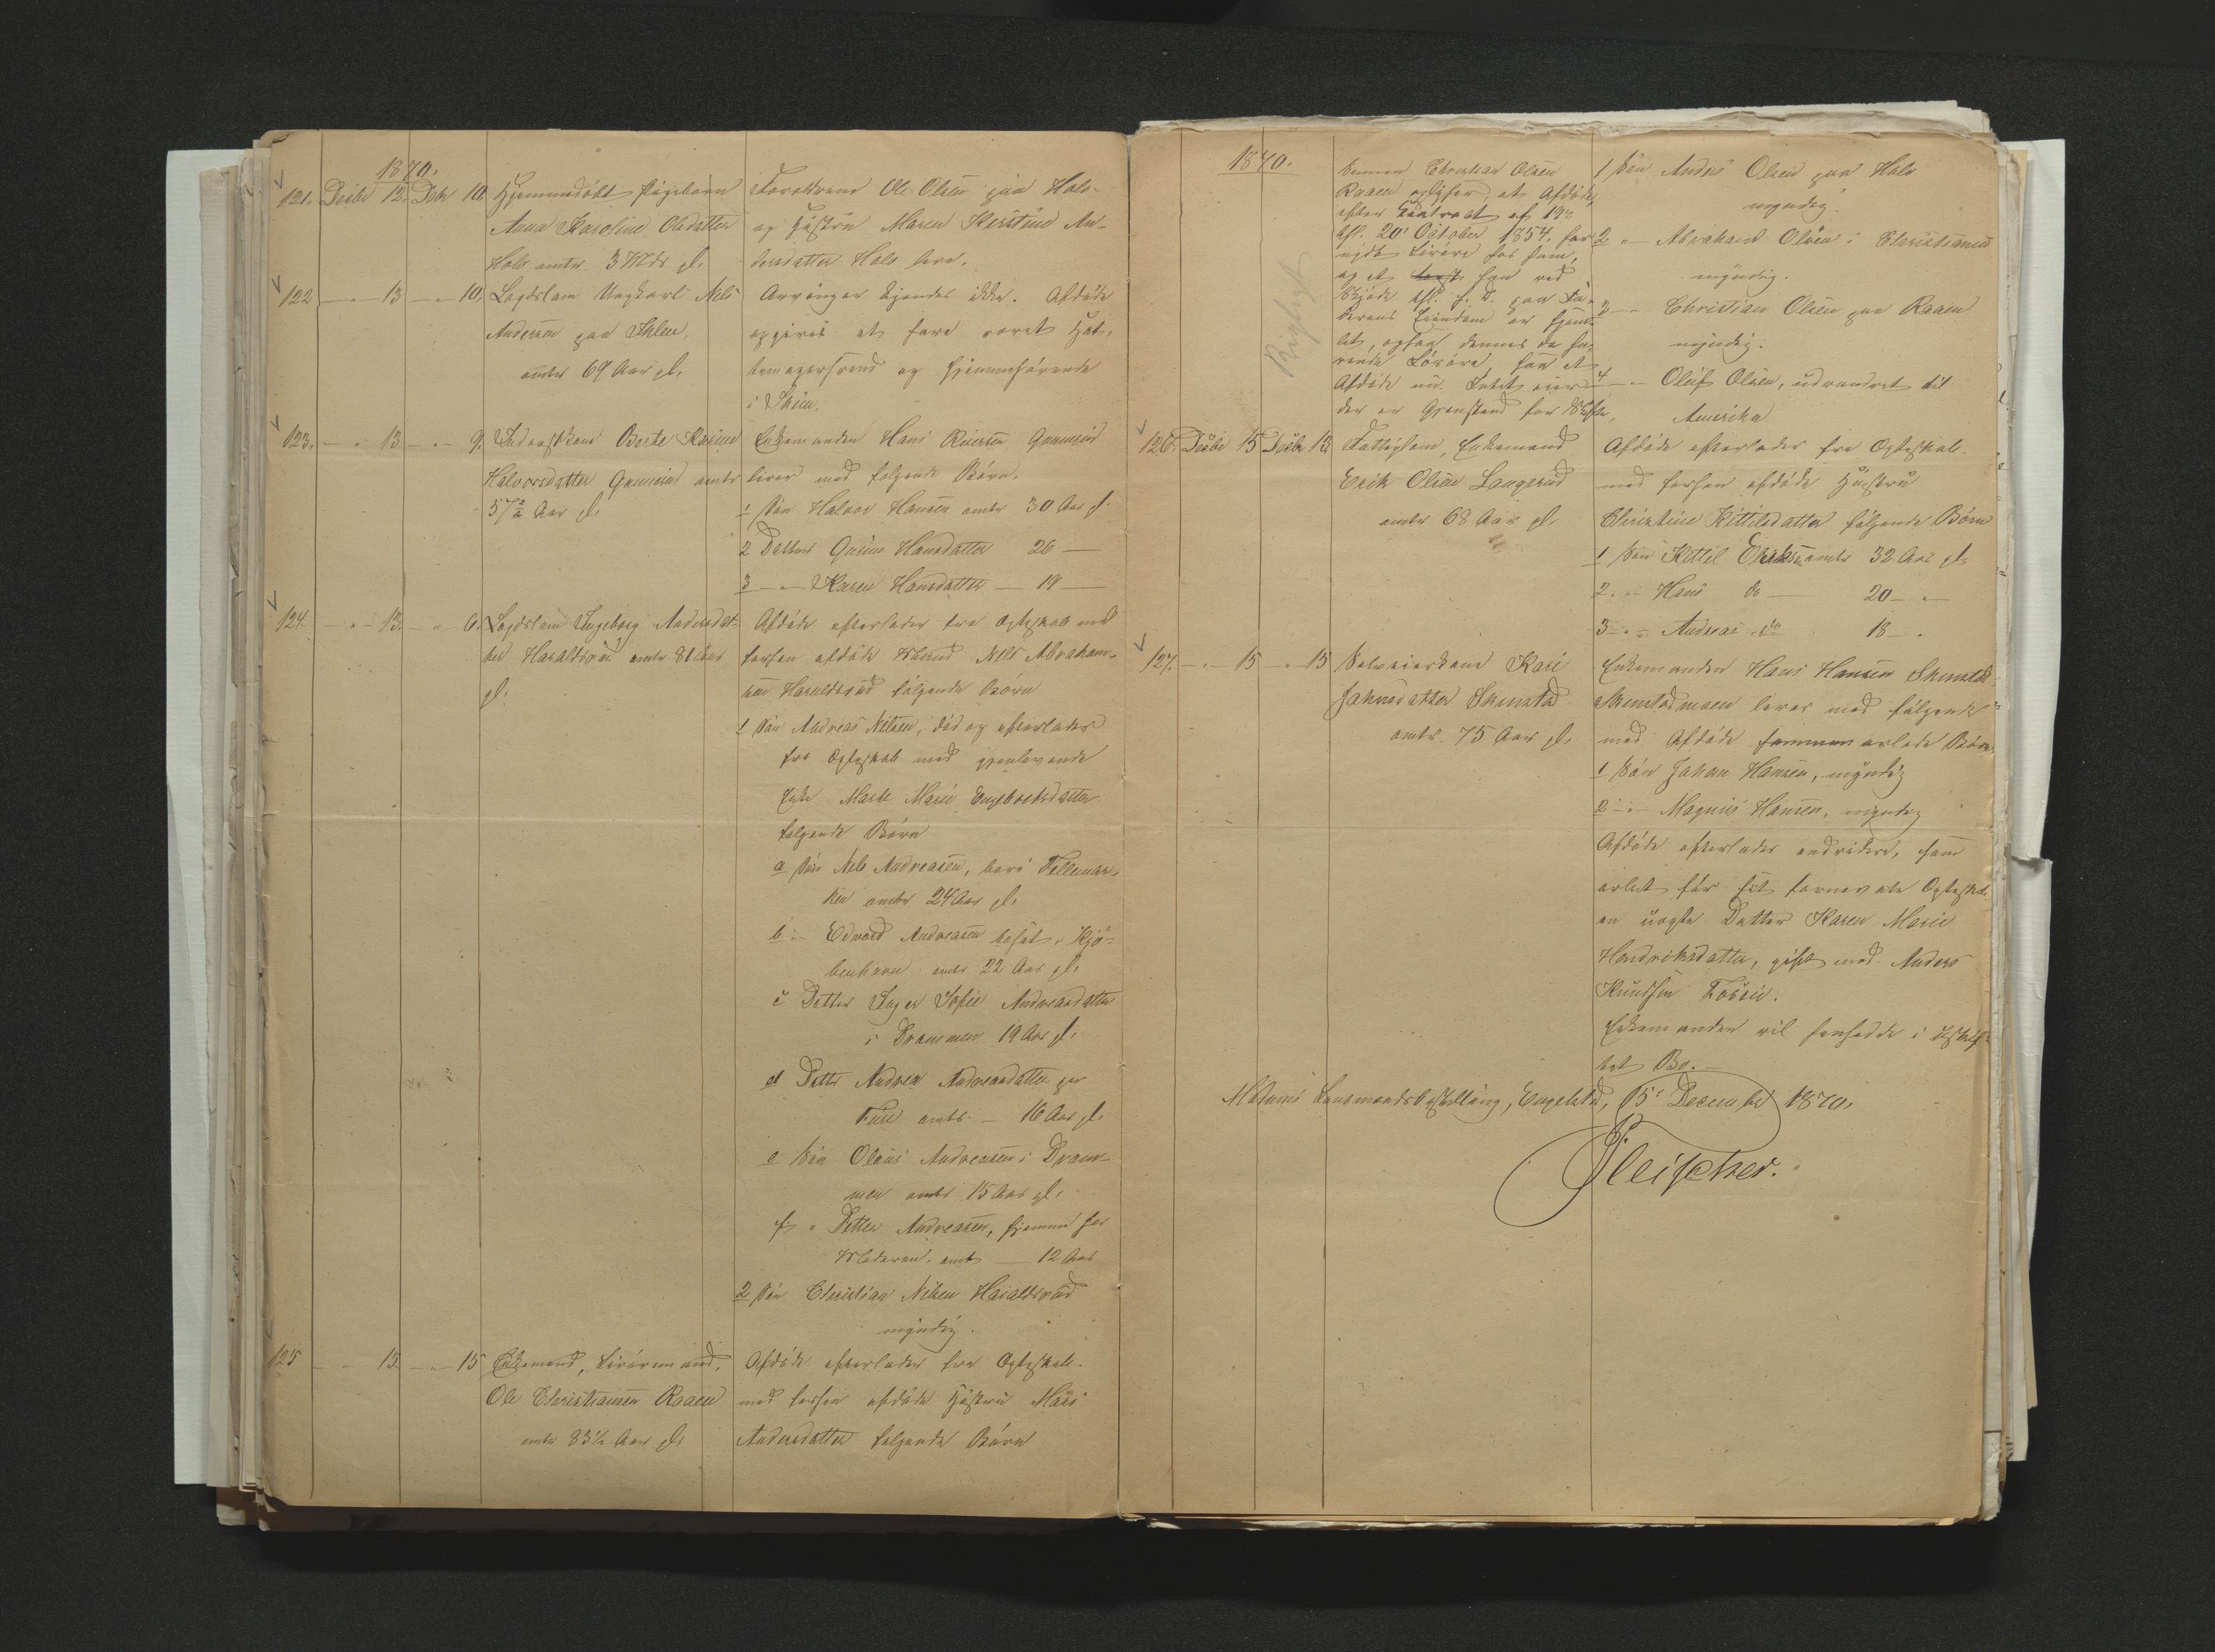 1870.
121. Decbr 12. Decbr 10. Hjemmedöbt Pigebarn
Anna Karoline Olsdatter
Hals omtr 3 Mdr gl.
Forældrene Ole Olsen paa Hals
og Hustru Maren Kirstine An-
dersdatter Hals leve.
122 — " — 13 — " — 10. Lægdslem Ungkarl Nils
Andersen paa
omtr 69 Aar gl.
Arvinger kjendes ikke. Afdøde
opgives at have været Hat-
temagersvend og hjemmehørende
i Skien.
123. — " — 13 — " — 9. Inderstkone Berte Karine
Halvorsdatter Gunnerud omtr
57½ Aar gl.
Enkemanden Hans Gunnerud
lever med følgende Børn.
1 Søn Halvor Hansen omtr 30 Aar gl.
2 Datter Hansdatter 26 —
3 — " — Karen Hansdatter — 19 —
124. — " — 13. — " — 6. Lægdslem Ingeborg Andersdat-
ter Haraldsrud omtr 81 Aar
gl.
Afdøde efterlader fra Ægteskab med
forhen afdøde Mand Nils Abraham-
sen Haraldsrud følgende Børn
1 Søn Andreas Nilsen, død og efterlader
fra Ægteskab med gjenlevende
Enke Marte Marie Engebretsdatter
følgende Børn
a Søn Nils Andreasen, bor i Tellemar-
ken omtr 24 Aar gl.
b — " — Edvard Andreasen bosat i Kjö-
benhavn omtr 22 Aar gl.
c Datter Inger Sofie Andreasdatter
i Drammen 19 Aar gl.
d Datter Andrea Andreasdatter paa
omtr — 16 Aar gl.
e Søn Olaus Andreasen i Dram-
men omtr 15 Aar gl.
f " Petter Andreasen, hjemme hos
Moderen, omtr — 12 Aar
2 Søn Christian Nilsen Haraldsrud
myndig.
125 — " — 15 — " — 15 Enkemand, Livöremand,
Ole Christiansen Raaen
omtr 83½ Aar gl.
Afdøde efterlader fra Ægteskab
med forhen afdøde Hustru Mari
Andersdatter følgende Børn
1870.
Rigtigt
Sønnen Christian Olsen
Raaen oplyser, at Afdøde,
efter Contract af 19de
tgl. 20' October 1854, har
nydt Livöre hos ham,
og at han ved
Skjøde tgl. s. D. paa Fa-
derens Eiendom er hjem-
let, ogsaa dennes da ha-
vende Løsøre saa at
Afdøde nu Intet eier
der er Gjenstand for Skifte.
1 Søn Anders Olsen paa Hals
myndig.
2 — " — Abraham Olsen i Christiania
myndig.
3 — " — Christian Olsen paa Raaen
myndig.
4 — " — Oluf Olsen, udvandret til
Amerika
126. Decbr 15 Decbr 13 Fattiglem, Enkemand
Erik Olsen Langerud
omtr 68 Aar gl.
Afdøde efterlader fra Ægteskab
med forhen afdøde Hustru
Christine Kittilsdatter følgende Børn
1 Søn Kittil Eriksen omtr 32 Aar gl.
2. — " — Hans do — 20 — " —
3 — " — Andreas do 18 — " —
127. — " — 15 — " — 15 Selveierkone Kari
Jahnsdatter Skinstad
omtr. 75 Aar gl.
Enkemanden Hans Hansen Skinstad
Skinstadmoen lever med følgende
med Afdøde sammen avlede Børn
1 Søn Johan Hansen, myndig
2 — " — Magnus Hansen, myndig
Afdøde efterlader endvidere, som
avlet før sit Ægteskab
en uægte Datter Karen Marie
Hendriksdatter, gift med Anders
Knudsen
Enkemanden vil hensidde i uskif-
tet Bo.
Modums Lensmandsbestilling, Engelstad, 15' December 1870.
Fleischer.